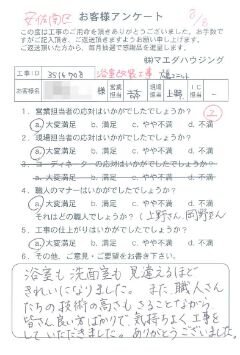 安佐南区
お客様アンケート
この度は工事のご用命を頂きありがとうございました。お手数で
すがご記入頂き、ご返送頂きますようお願い申し上げます。
ご返送頂いた方から、毎月抽選で感謝品を進呈します。
㈱マエダハウジング
工事ID 3514908 浴室改装工事
お客様名 様 営業担当 現場担当 上野 IC担当
1. 営業担当者の応対はいかがでしたでしょうか?
a.大変満足 b.満足 c.やや不満 d.不満
2. 現場担当者の応対はいかがでしたでしょうか?
a.大変満足 b.満足 c.やや不満 d.不満
3. コーディネーターの応対はいかがでしたでしょうか?
a.大変満足 b.満足 c.やや不満 d.不満
4. 職人のマナーはいかがでしたでしょうか?
a.大変満足 b.満足 c.やや不満 d.不満
それはどの職人でしょうか?(上野さん、岡野さん)
5. 工事の仕上がりはいかがでしたでしょうか?
a.大変満足 b.満足 c.やや不満 d.不満
6. その他、ご意見・ご要望をお書き下さい。
浴室も洗面室も見違えるほど
きれいになりました。また職人さん
たちの技術の高さもさることながら
皆さん良い方ばかりで、気持ちよく工事を
していただきました。ありがとうございました。